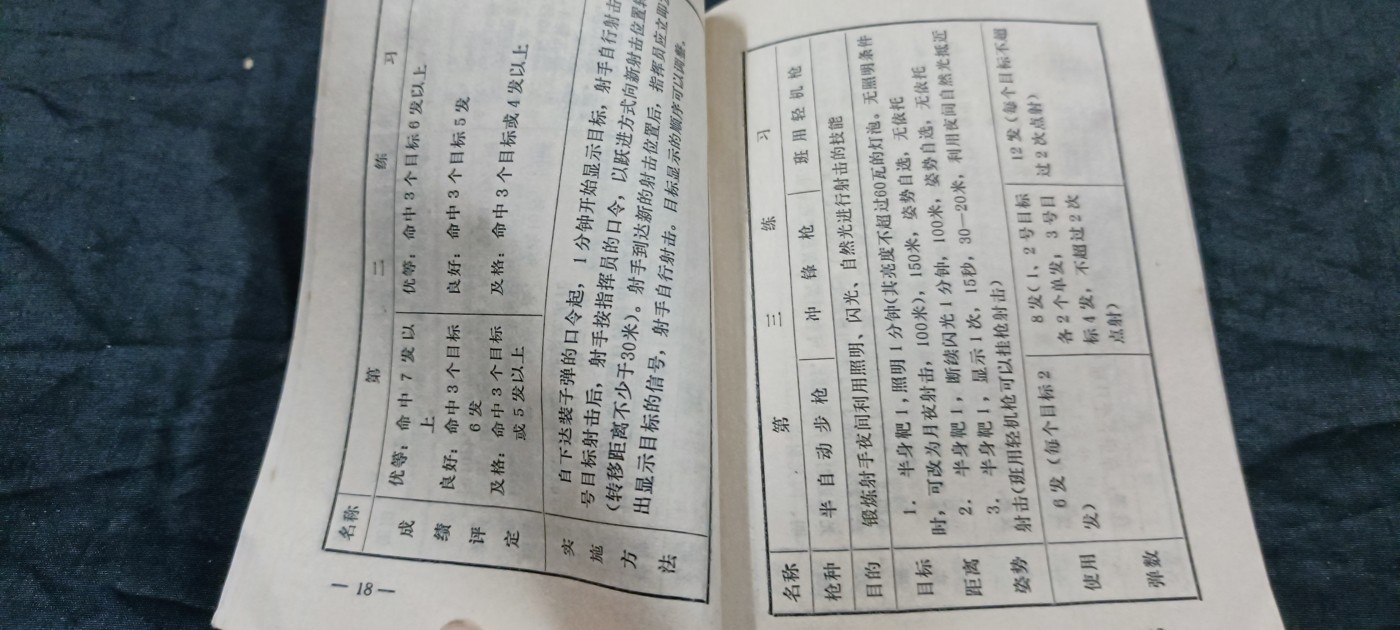 名称
第二练习
成绩评定
优等：命中7发以上
良好：命中3个目标6发
及格：命中3个目标或5发以上
优等：命中3个目标6发以上
良好：命中3个目标5发
及格：命中3个目标或4发以上
实施方法
自下达装子弹的口令起，1分钟开始显示目标，射手自行射击
号目标射击后，射手按指挥员的口令，以跃进方式向新射击位置
（转移距离不少于30米）。射手到达新的射击位置后，指挥员应立即
出显示目标的信号，射手自行射击。目标显示的顺序可以调整。
— 18 —
名称
第三练习
枪种
半自动步枪
冲锋枪
班用轻机枪
目的
锻炼射手夜间利用照明、闪光、自然光进行射击的技能
目标
距离
姿势
1. 半身靶1，照明1分钟（其亮度不超过60瓦的灯泡。无照明条件
时，可改为月夜射击，100米），150米，姿势自选，无依托
2. 半身靶1，断续闪光1分钟，100米，姿势自选，无依托
3. 半身靶1，显示1次，15秒，30—20米，利用夜间自然光抵近
射击（班用轻机枪可以挂枪射击）
使用
弹数
6发（每个目标2
发）
8发（1、2号目标
各2个单发，3号目
标4发，不超过2次
点射）
12发（每个目标不超
过2次点射）